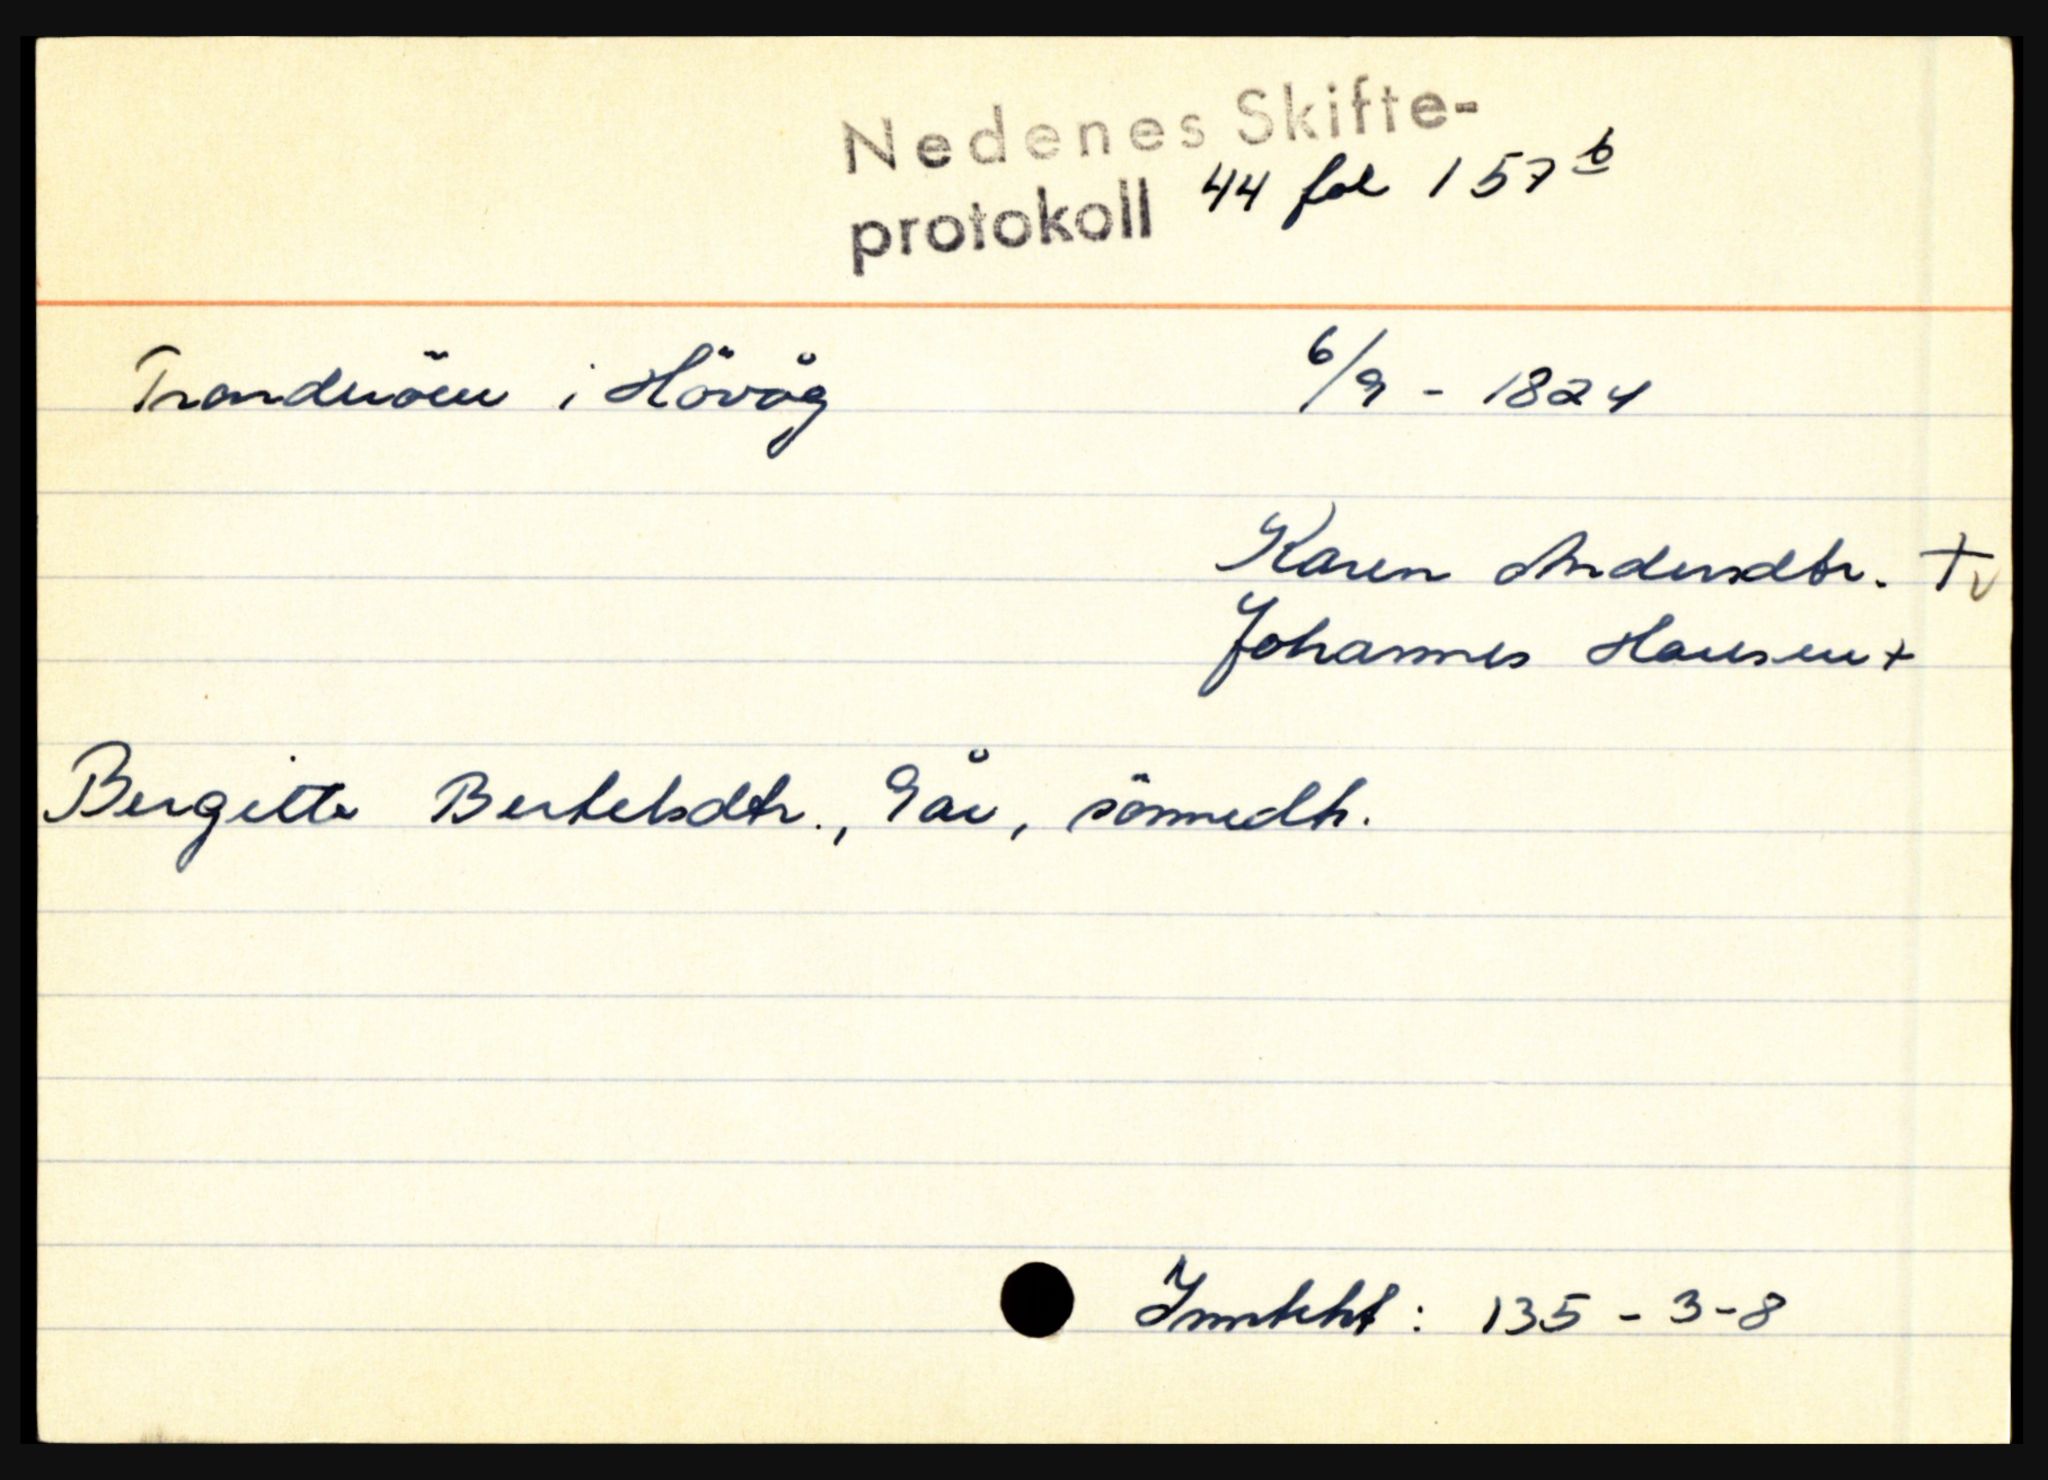 Nedenes Skifte-
protokoll 44 fol 157 b
i Hövåg 6/9 - 1824
Karen Andersdtr. + v
Johannes Hansen +
Bergitte Bertelsdtr., 9 år, sönnedtr.
Inntekt : 135 - 3 - 8